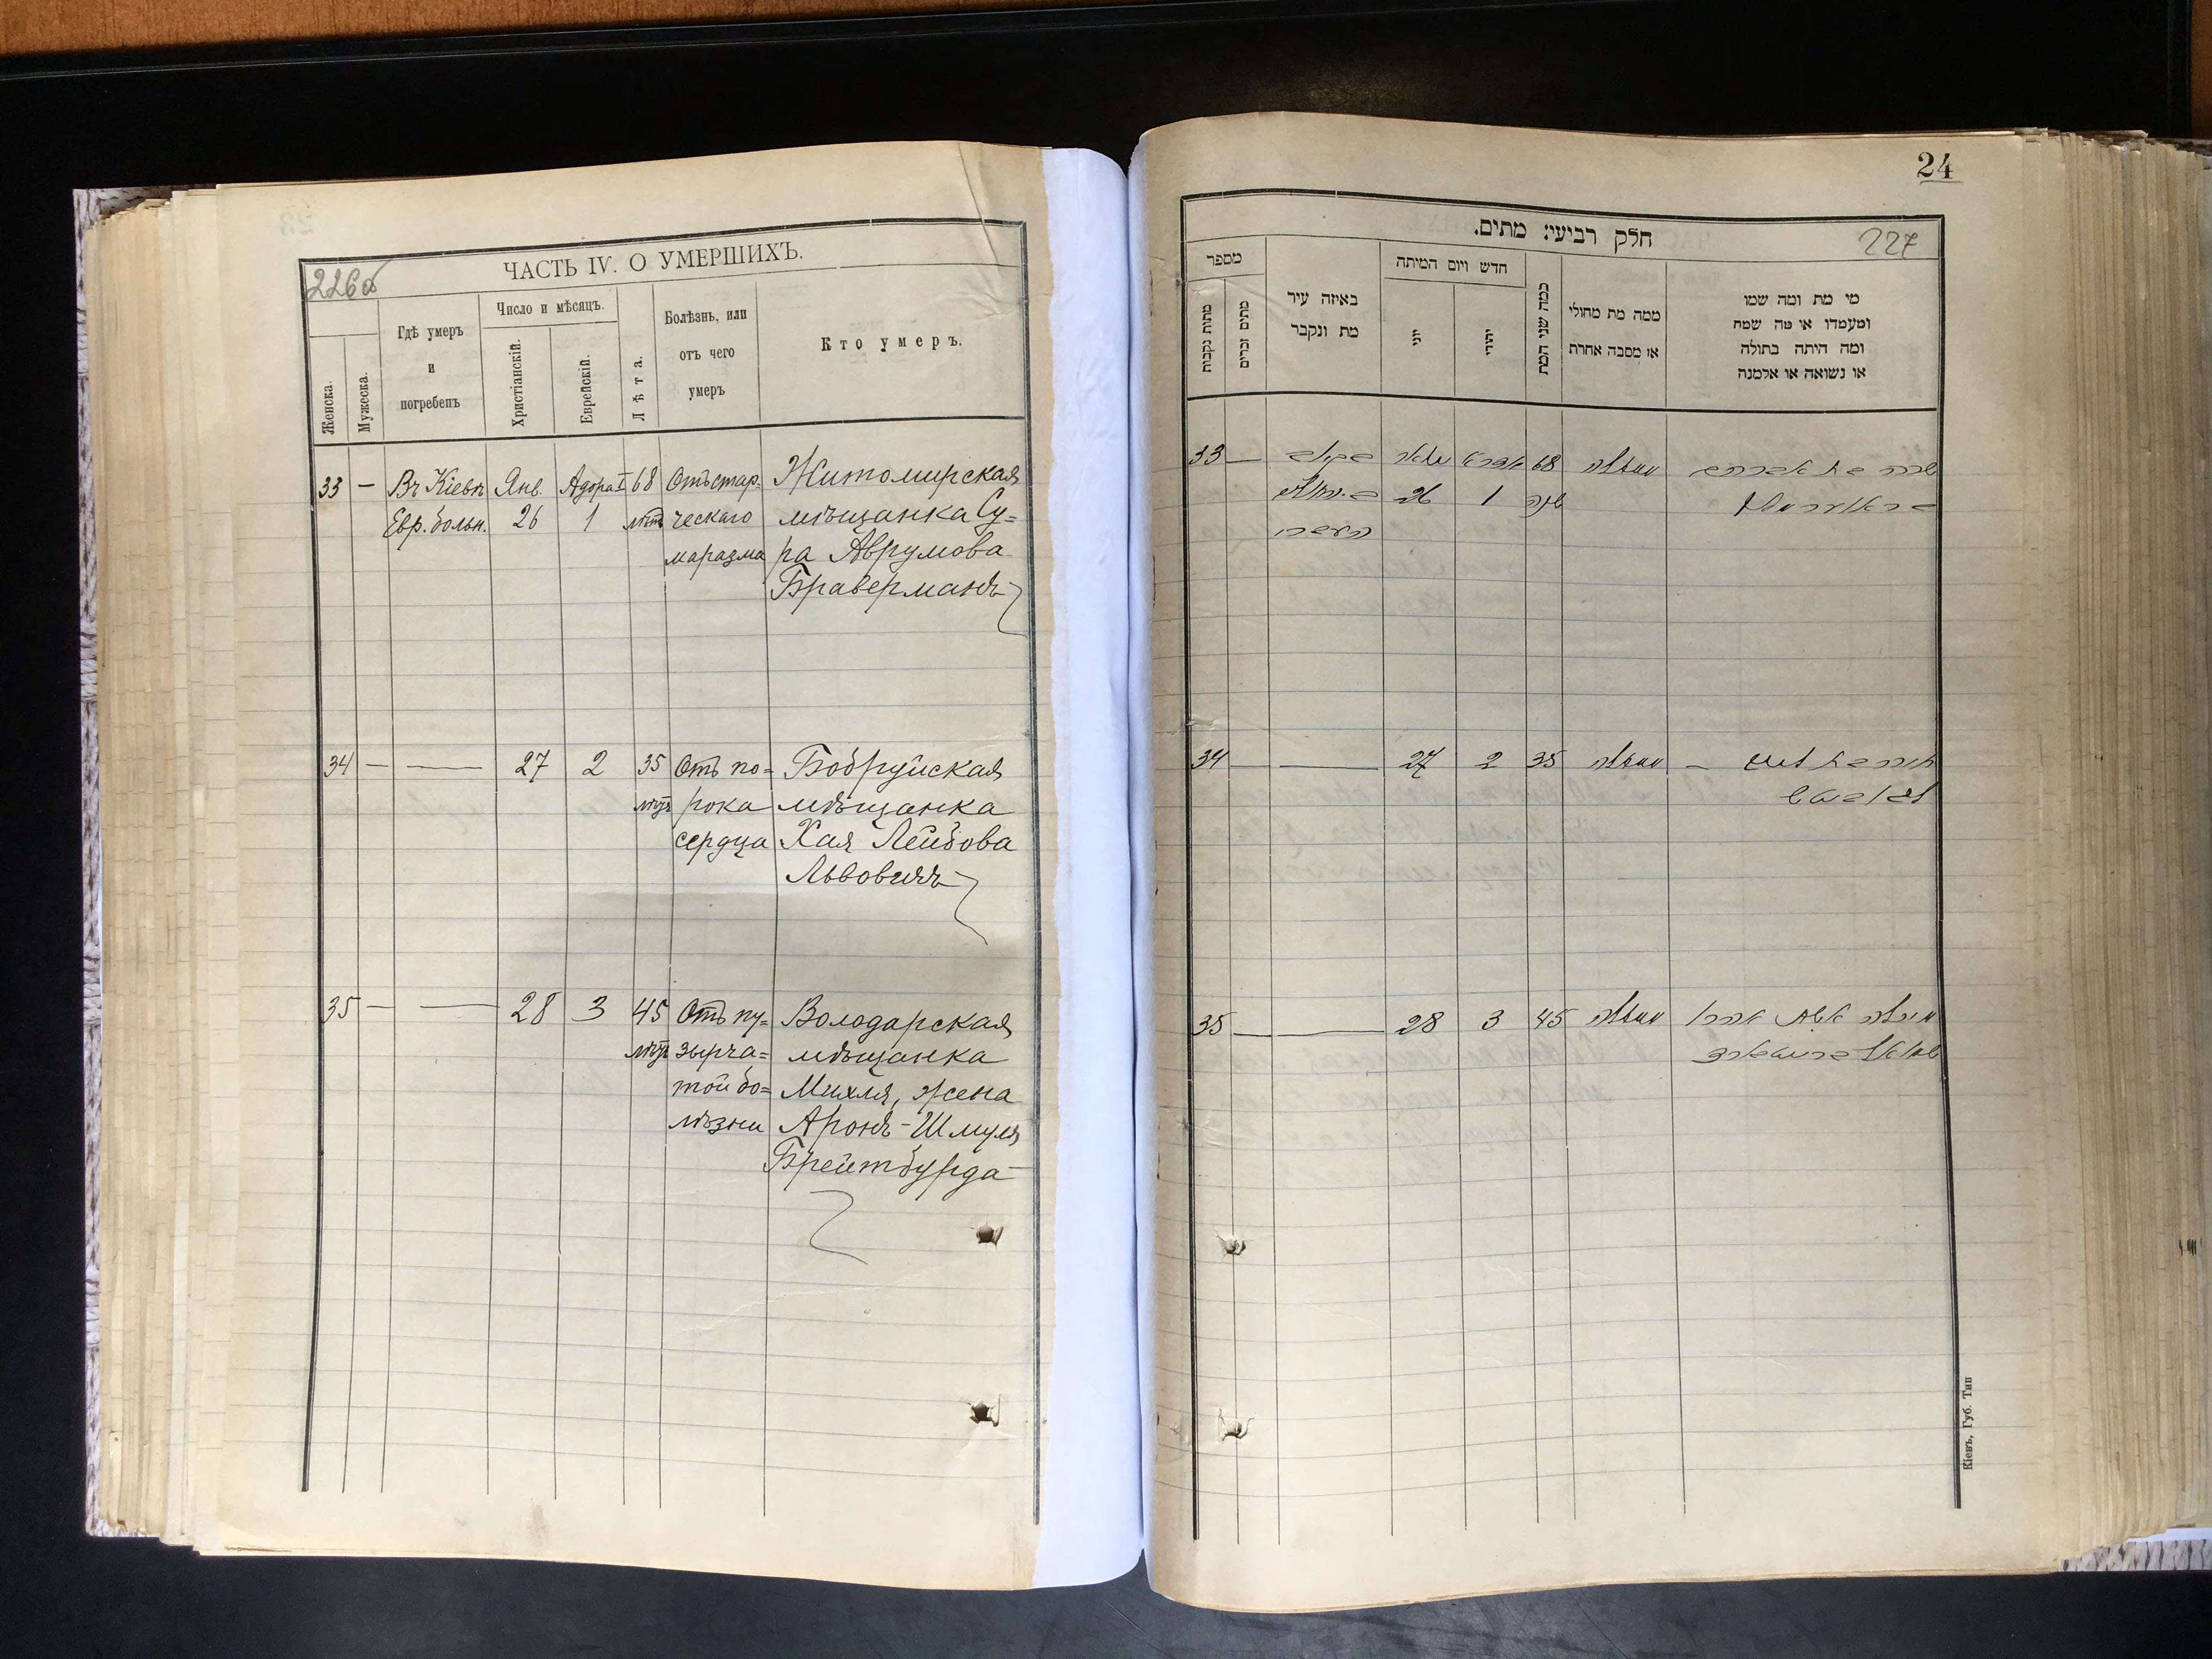 226об
ЧАСТЬ IV. О УМЕРШИХЪ.
Женска.
Мужеска.
Гдѣ умеръ
и
погребенъ
Число и мѣсяцъ.
Христіанскій.
Еврейскій.
Лѣта.
Болѣзнь, или
отъ чего
умеръ
Кто умеръ.
33 — Въ Кіевѣ Янв. Адора I 68 Отъ стар- Житомирская
Евр. больн. 26 1 лѣтъ ческаго мѣщанка Су-
маразма ра Аврумова
Браверманъ
34 — — 27 2 35 Отъ по- Бобруйская
лѣтъ рока мѣщанка
сердца Хая Лейбова
Львовичъ
35 — — 28 3 45 Отъ пу- Володарская
лѣтъ зырча- мѣщанка
той бо- Михля, жена
лѣзни Аронъ-Шмуля
Брейтбурда
24
227
חלק רביעי: מתים.
מספר
מתות נקבות
מתים זכרים
באיזה עיר
מת ונקבר
חדש ויום המיתה
יוני
יהודי
כמה שני המת
ממה מת מחולי
או מסבה אחרת
מי מת ומה שמו
ומעמדו או מה שמה
ומה היתה בתולה
או נשואה או אלמנה
33 — 68 שרה בת אברהם
26 1 שנה בראווערמאן
34 — — 27 2 35 — חיה בת לייב
35 — — 28 3 45 מיכלה אשת אהרן
שמואל
Кіевъ, Губ. Тип